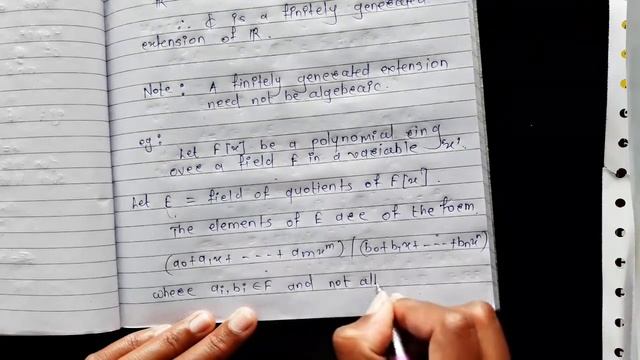 R
∴ ₵ is a finitely generated
extension of R.
Note : A finitely generated extension
need not be algebraic.
eg:
Let F[x] be a polynomial ring
over a field F in a variable 'x'.
Let E = field of quotients of F[x].
The elements of E are of the form
(a₀+a₁x+ ----+ aₘxᵐ) / (b₀+b₁x+ ----+bₙxⁿ)
where aᵢ, bᵢ ∈ F and not all